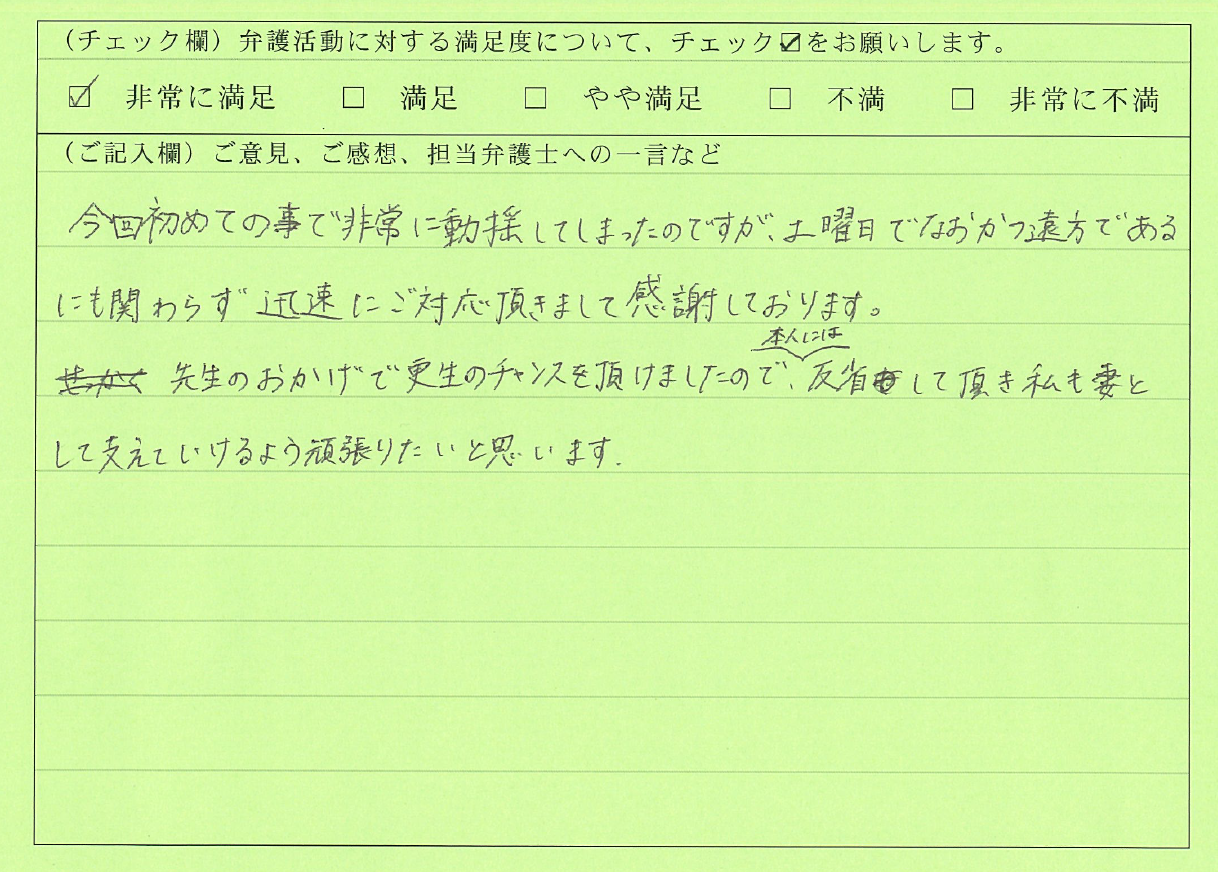 (チェック欄) 弁護活動に対する満足度について、チェック☑をお願いします。
☑ 非常に満足 □ 満足 □ やや満足 □ 不満 □ 非常に不満
(ご記入欄) ご意見、ご感想、担当弁護士への一言など
今回初めての事で非常に動揺してしまったのですが、土曜日でなおかつ遠方である
にも関わらず迅速にご対応頂きまして感謝しております。
本人には
先生のおかげで更生のチャンスを頂けましたので、反省して頂き私も妻と
して支えていけるよう頑張りたいと思います.